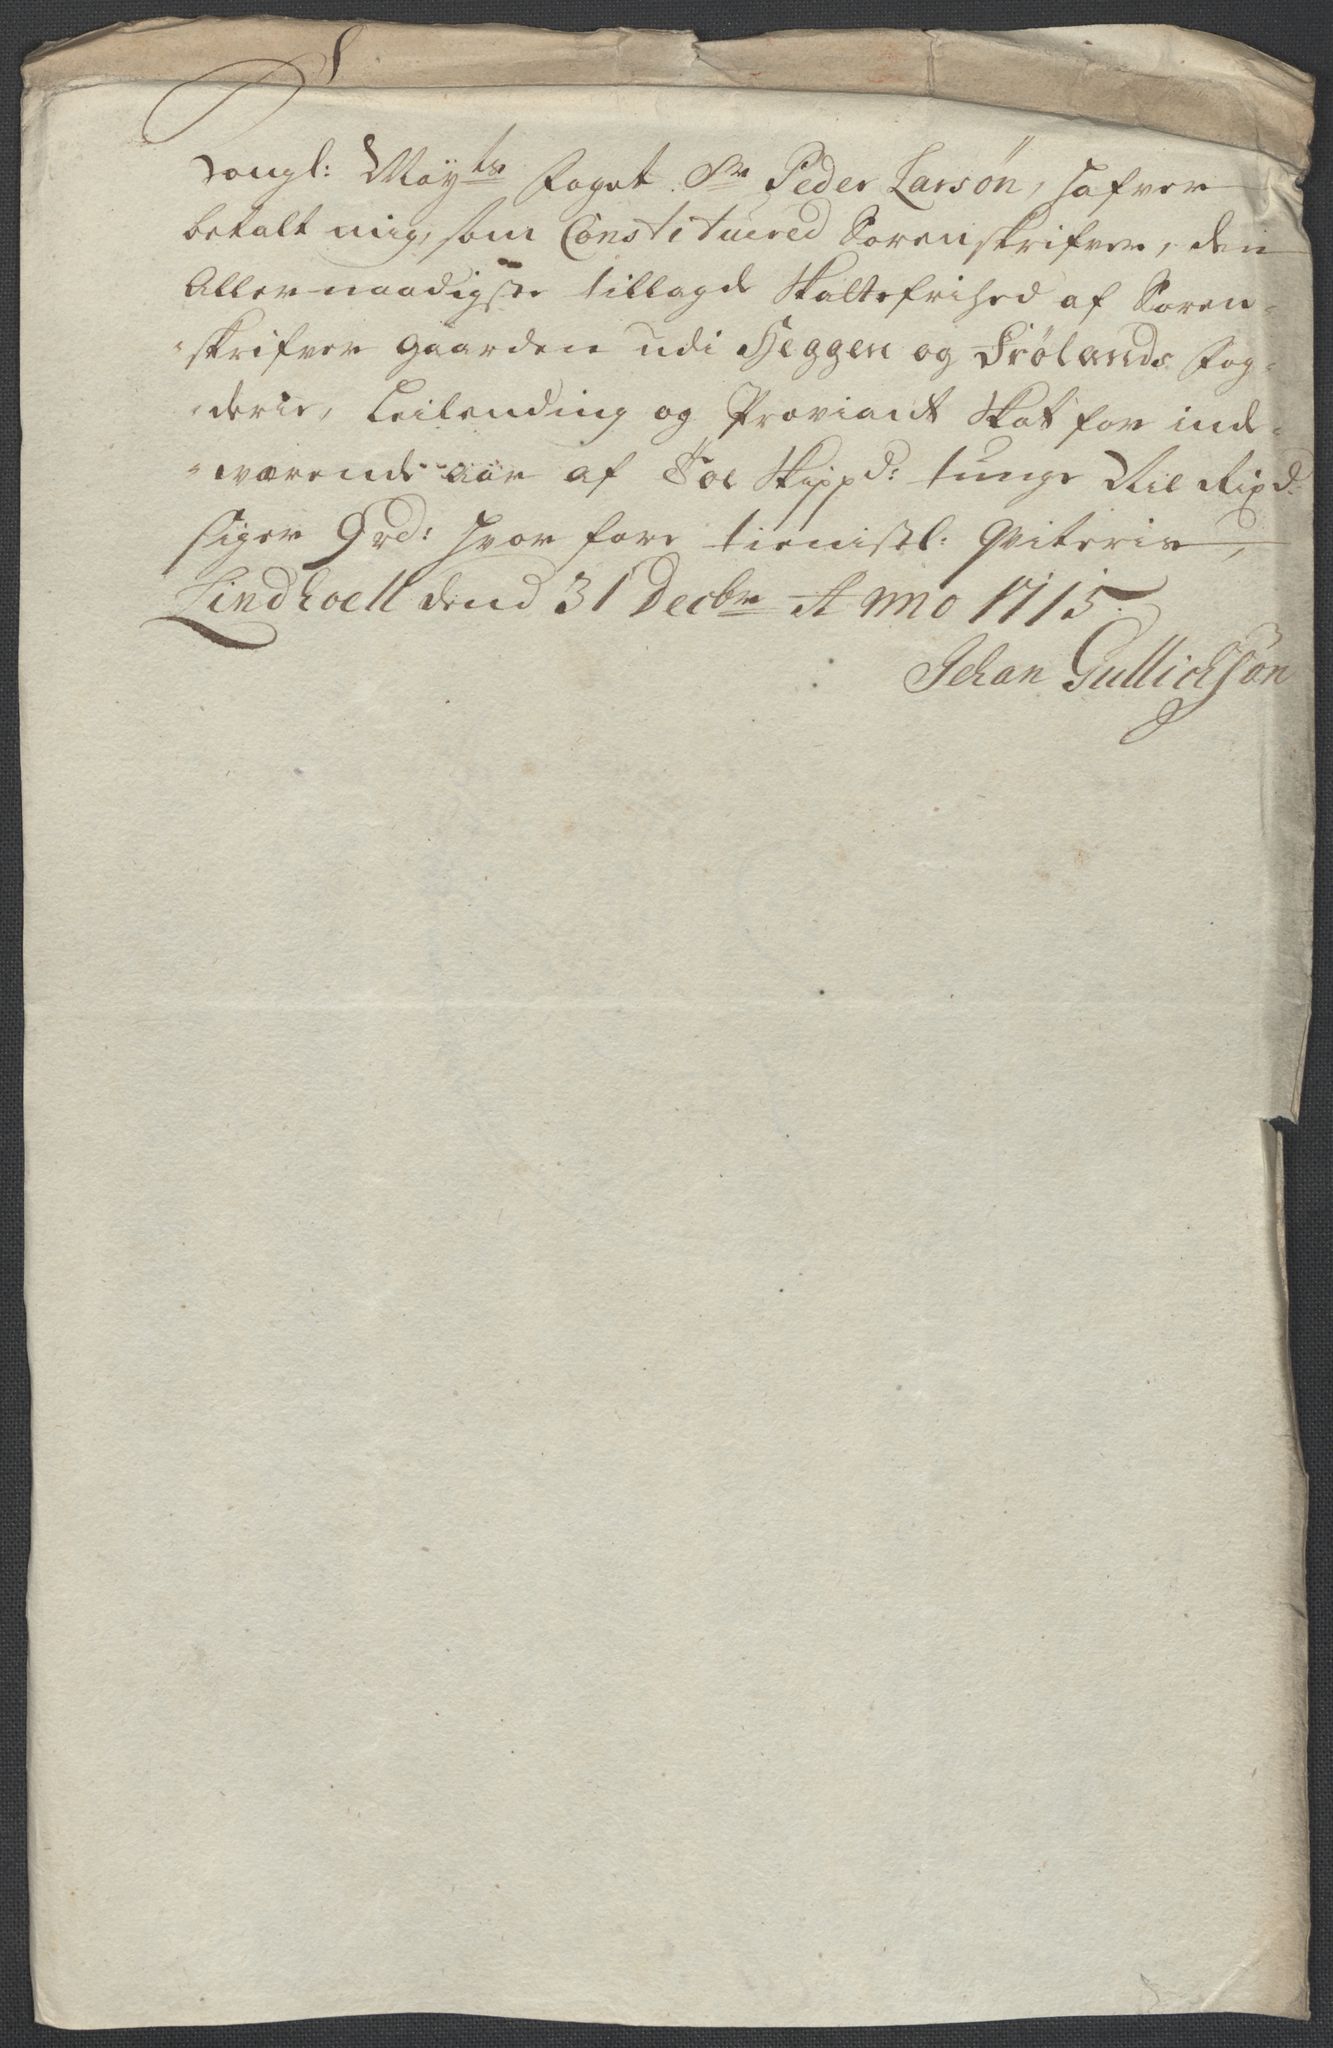 Kongl: Mayts Foget Sr Peder Larsøn, hafver
betalt mig, som Constituered Sorenskrifver, den
Allernaadigste tillagde Skattefrihed af Soren-
skrifver gaarden udi Heggen og Frølands Fog-
derie, Leilending og Proviant Skat for ind-
værende aar af Toe Skippd: tunge
siger 9 rd: hvor fore tienistl: Qviteris,
Lindhoell dend 31 Decbr Anno 1715.
Johan Gullichsøn